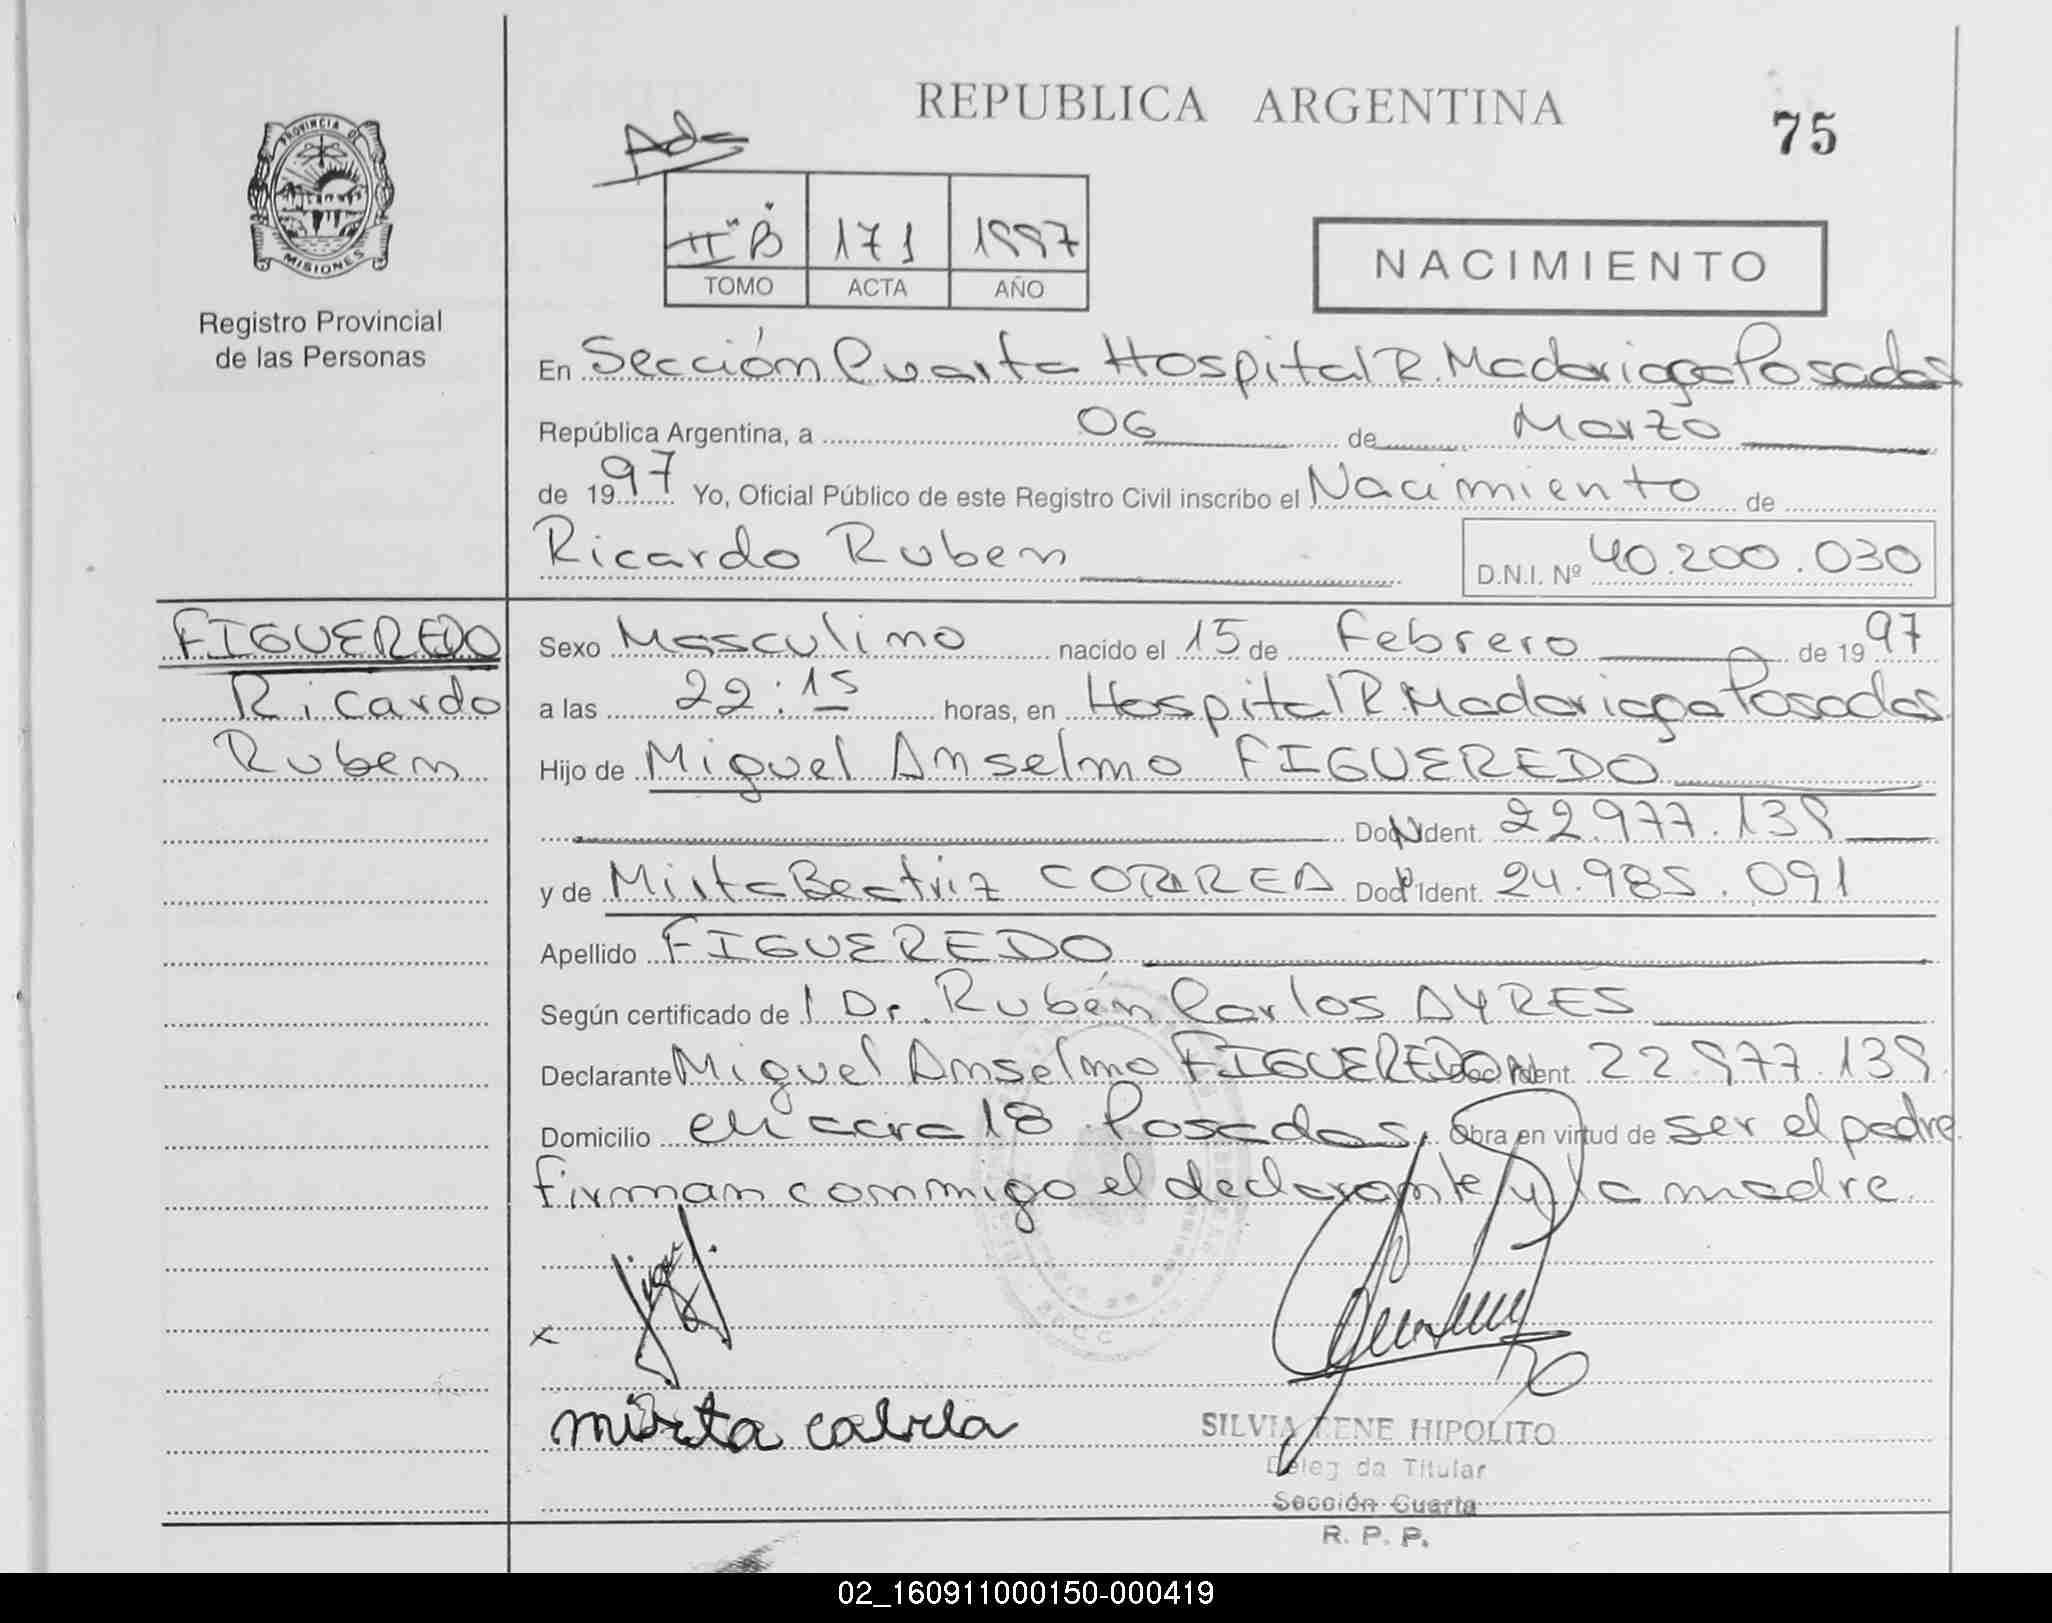 REPUBLICA ARGENTINA
75
Ads
PROVINCIA DE
MISIONES
II "B" 171 1997
TOMO ACTA AÑO
NACIMIENTO
Registro Provincial
de las Personas
En Sección Cuarta Hospital R. Madariaga Posadas
República Argentina, a 06 de Marzo
de 1997 Yo, Oficial Público de este Registro Civil inscribo el Nacimiento de
Ricardo Ruben
D.N.I. Nº 40.200.030
FIGUEREDO
Ricardo
Ruben
Sexo Masculino nacido el 15 de Febrero de 1997
a las 22:15 horas, en Hospital R. Madariaga Posadas
Hijo de Miguel Anselmo FIGUEREDO
Doc. Ident. 22.977.139
y de Mirta Beatriz CORREA Doc. Ident. 24.985.091
Apellido FIGUEREDO
Según certificado de l Dr. Rubén Carlos AYRES
Declarante Miguel Anselmo FIGUEREDO Doc. Ident. 22.977.139
Domicilio chacra 18 Posadas, Obra en virtud de ser el padre
firman conmigo el declarante y la madre.
x
mirta
SILVIA RENE HIPOLITO
Delegada Titular
Sección Cuarta
R. P. P.
02_160911000150-000419